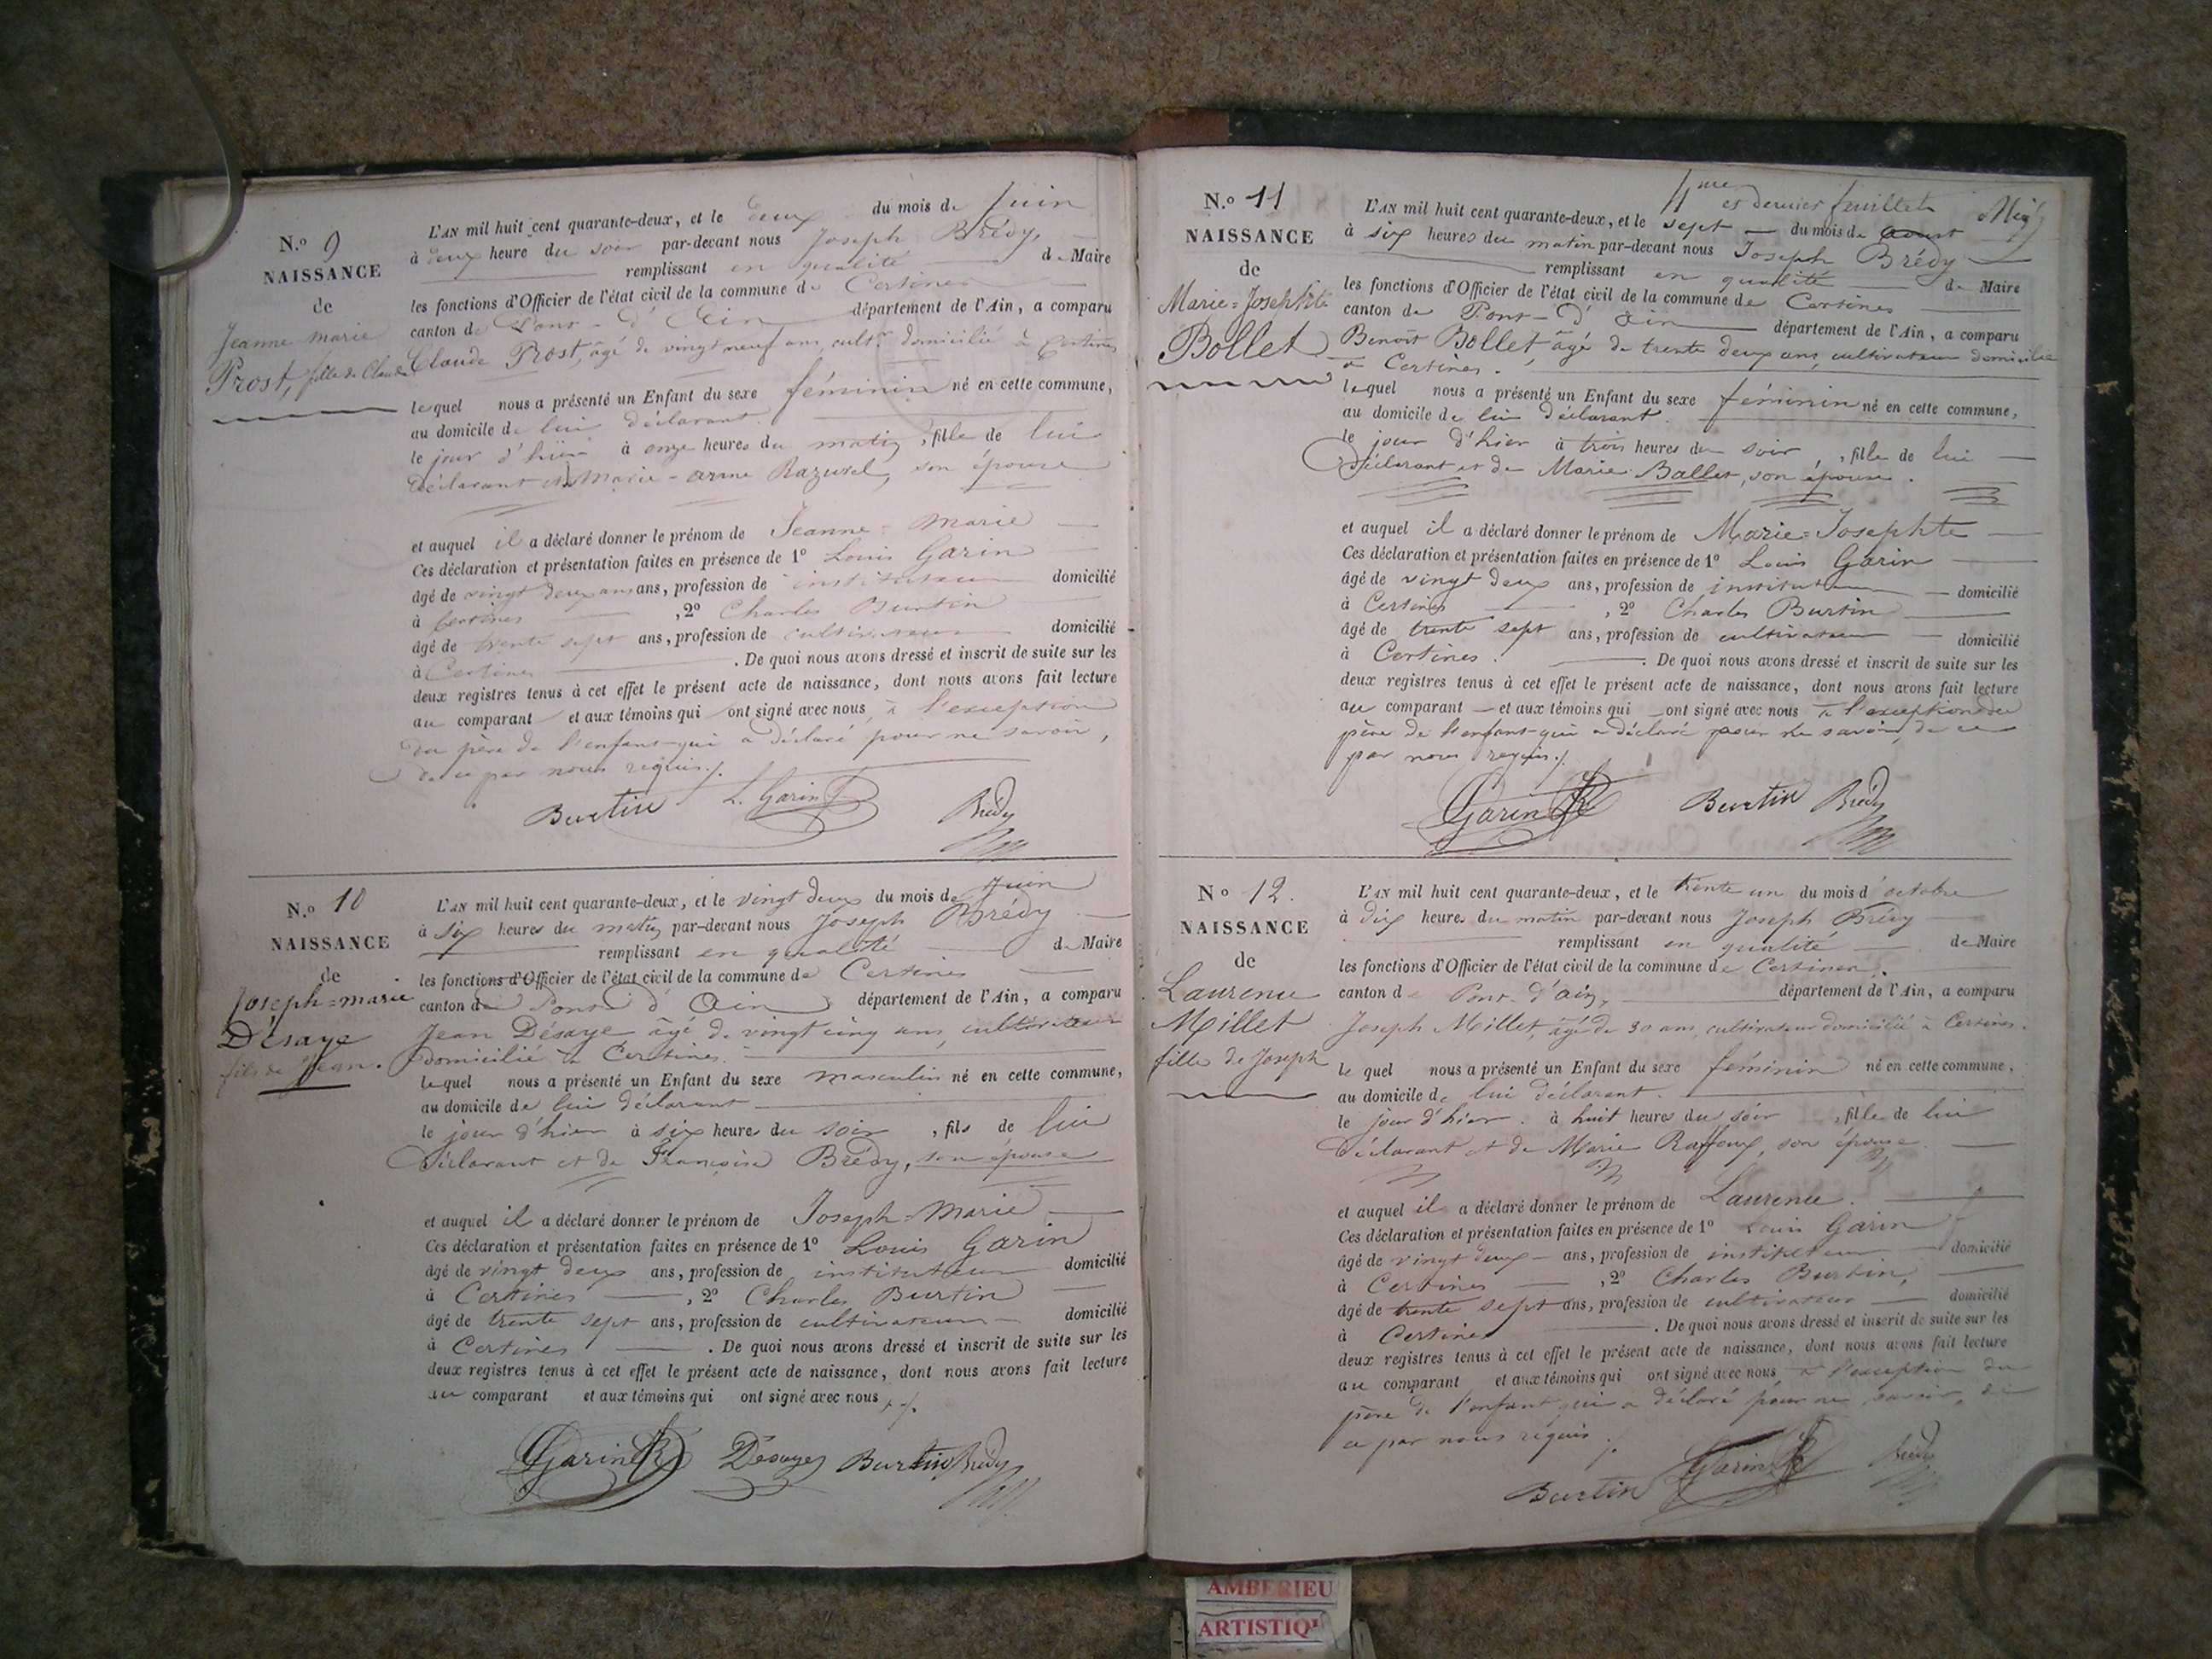 N.o 9
NAISSANCE
de
Jeanne marie
Prost, fille de Claude
L'AN mil huit cent quarante-deux, et le deux du mois de Juin
à deux heure du soir par-devant nous Joseph Brédy,
remplissant en qualité de Maire
les fonctions d'Officier de l'état civil de la commune de Certines
canton de Pont-d'Ain département de l'Ain, a comparu
Claude Prost, âgé de vingt neuf ans, cultr domicilié à Certines
lequel nous a présenté un Enfant du sexe féminin né en cette commune,
au domicile de lui déclarant.
le jour d'hier à onze heures du matin, fille de lui
déclarant et de Marie-anne Razurel, son épouse
et auquel il a déclaré donner le prénom de Jeanne=marie
Ces déclaration et présentation faites en présence de 1o Louis Garin
âgé de vingt deux ans ans, profession de instituteur domicilié
à Certines, 2o Charles Burtin
âgé de trente sept ans, profession de cultivateur domicilié
à Certines. De quoi nous avons dressé et inscrit de suite sur les
deux registres tenus à cet effet le présent acte de naissance, dont nous avons fait lecture
au comparant et aux témoins qui ont signé avec nous, à l'exception
du père de l'enfant qui a déclaré pour ne savoir,
de ce par nous requis./.
Burtin L. Garin Brédy
N.o 10
NAISSANCE
de
Joseph=marie
Désaye
fils de Jean.
L'AN mil huit cent quarante-deux, et le vingt deux du mois de Juin
à six heures du matin par-devant nous Joseph Brédy
remplissant en qualité de Maire
les fonctions d'Officier de l'état civil de la commune de Certines
canton de Pont d'Ain département de l'Ain, a comparu
Jean Désaye âgé de vingt cinq ans, cultivateur
domicilié à Certines.
lequel nous a présenté un Enfant du sexe masculin né en cette commune,
au domicile de lui déclarant
le jour d'hier à six heures du soir, fils de lui
déclarant et de Françoise Brédy, son épouse
et auquel il a déclaré donner le prénom de Joseph=Marie
Ces déclaration et présentation faites en présence de 1o Louis Garin
âgé de vingt deux ans, profession de instituteur domicilié
à Certines, 2o Charles Burtin
âgé de trente sept ans, profession de cultivateur domicilié
à Certines. De quoi nous avons dressé et inscrit de suite sur les
deux registres tenus à cet effet le présent acte de naissance, dont nous avons fait lecture
au comparant et aux témoins qui ont signé avec nous ./.
Garin Désayes Burtin Brédy
4me et dernier feuillet
N.o 11
NAISSANCE
de
Marie=Josephte
Bollet
L'AN mil huit cent quarante-deux, et le sept du mois de aoust
à six heures du matin par-devant nous Joseph Brédy
remplissant en qualité de Maire
les fonctions d'Officier de l'état civil de la commune de Certines
canton de Pont-d'ain département de l'Ain, a comparu
Benoît Bollet âgé de trente deux ans, cultivateur domicilié
à Certines.
lequel nous a présenté un Enfant du sexe féminin né en cette commune,
au domicile de lui déclarant.
le jour d'hier à trois heures du soir, fille de lui
déclarant et de Marie Ballet, son épouse.
et auquel il a déclaré donner le prénom de Marie=Josephte
Ces déclaration et présentation faites en présence de 1o Louis Garin
âgé de vingt deux ans, profession de instituteur domicilié
à Certines, 2o Charles Burtin
âgé de trente sept ans, profession de cultivateur domicilié
à Certines. De quoi nous avons dressé et inscrit de suite sur les
deux registres tenus à cet effet le présent acte de naissance, dont nous avons fait lecture
au comparant et aux témoins qui ont signé avec nous à l'exception du
père de l'enfant qui a déclaré pour ne savoir, de ce
par nous requis./.
Garin Burtin Brédy
No 12.
NAISSANCE
de
Laurence
Millet
fille de Joseph
L'AN mil huit cent quarante-deux, et le trente un du mois d'octobre
à dix heures du matin par-devant nous Joseph Brédy
remplissant en qualité de Maire
les fonctions d'Officier de l'état civil de la commune de Certines.
canton de Pont-d'ain, département de l'Ain, a comparu
Joseph Millet, âgé de 30 ans, cultivateur domicilié à Certines.
lequel nous a présenté un Enfant du sexe féminin né en cette commune,
au domicile de lui déclarant.
le jour d'hier. à huit heures du soir, fille de lui
déclarant et de Marie Raffoux, son épouse.
et auquel il a déclaré donner le prénom de Laurence.
Ces déclaration et présentation faites en présence de 1o Louis Garin
âgé de vingt deux ans, profession de instituteur domicilié
à Certines, 2o Charles Burtin,
âgé de trente sept ans, profession de cultivateur domicilié
à Certines. De quoi nous avons dressé et inscrit de suite sur les
deux registres tenus à cet effet le présent acte de naissance, dont nous avons fait lecture
au comparant et aux témoins qui ont signé avec nous, à l'exception du
père de l'enfant qui a déclaré pour ne savoir, de
ce par nous requis ./.
Burtin Garin Brédy
AMBERIEU
ARTISTIQU